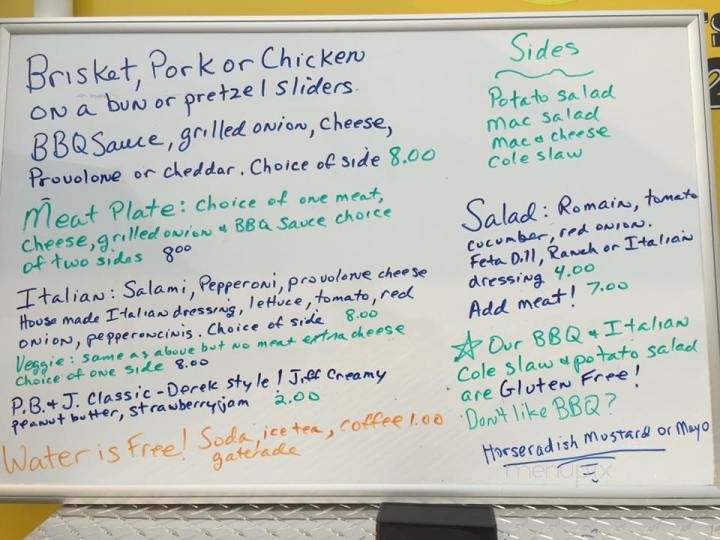 Brisket, Pork or Chicken
on a bun or pretzel sliders.
BBQ Sauce, grilled onion, cheese,
Provolone or cheddar. Choice of side 8.00
Meat Plate: choice of one meat,
cheese, grilled onion & BBQ Sauce choice
of two sides 8.00
Italian: Salami, Pepperoni, provolone cheese
House made Italian dressing, lettuce, tomato, red
onion, pepperoncinis. Choice of side 8.00
Veggie: same as above but no meat extra cheese
Choice of one side 8.00
P.B. & J. Classic - Derek style! Jiff Creamy
peanut butter, strawberry jam 2.00
Water is Free! Soda, ice tea, coffee 1.00
gaterade
Sides
Potato salad
mac salad
mac & cheese
Cole slaw
Salad: Romain, tomato
cucumber, red onion.
Feta Dill, Ranch or Italian
dressing 4.00
Add meat! 7.00
Our BBQ & Italian
Cole slaw & potato salad
are Gluten Free!
Don't like BBQ?
Horseradish Mustard or Mayo
menupix